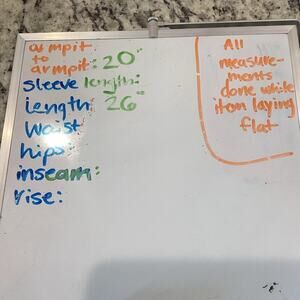 armpit
to
armpit: 20"
sleeve length: -
length: 26"
waist
hips:
inseam:
rise:
All
measure-
ments
done while
item laying
flat